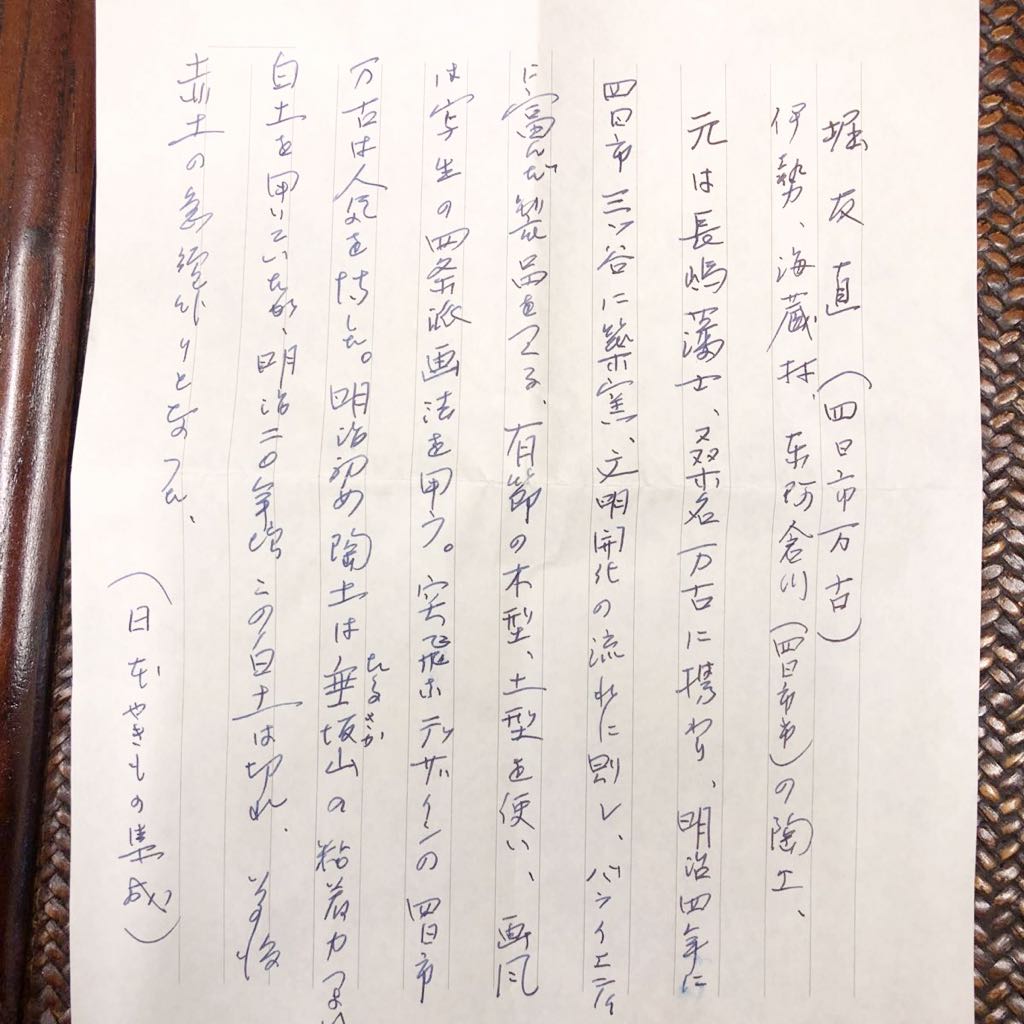 堀友直(四日市万古)
伊勢、海蔵村、東阿倉川(四日市市)の陶工、
元は長嶋藩士、桑名万古に携わり、明治四年に
四日市三ツ谷に築窯、文明開化の流れに則し、バライエティ
に富んだ製品をつくる、有節の木型、土型を使い、画風
は写生の四条派画法を用う。突飛なデザインの四日市
万古は人気を博した。明治初め陶土は垂坂山の粘着力つよい
たるさか
白土を用いていたが、明治二〇年頃この白土は切れ、以後
赤土の急須作りとなった、
(日本やきもの集成)